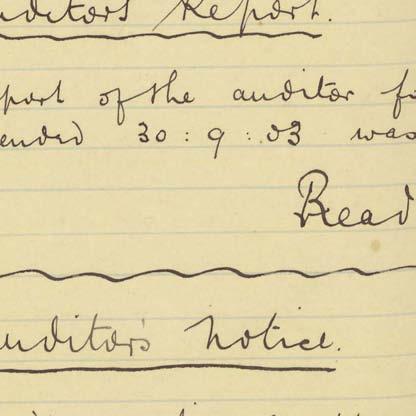 uditors Report.
port of the auditor fo
ended 30:9:03 was
Read
uditor's Notice.